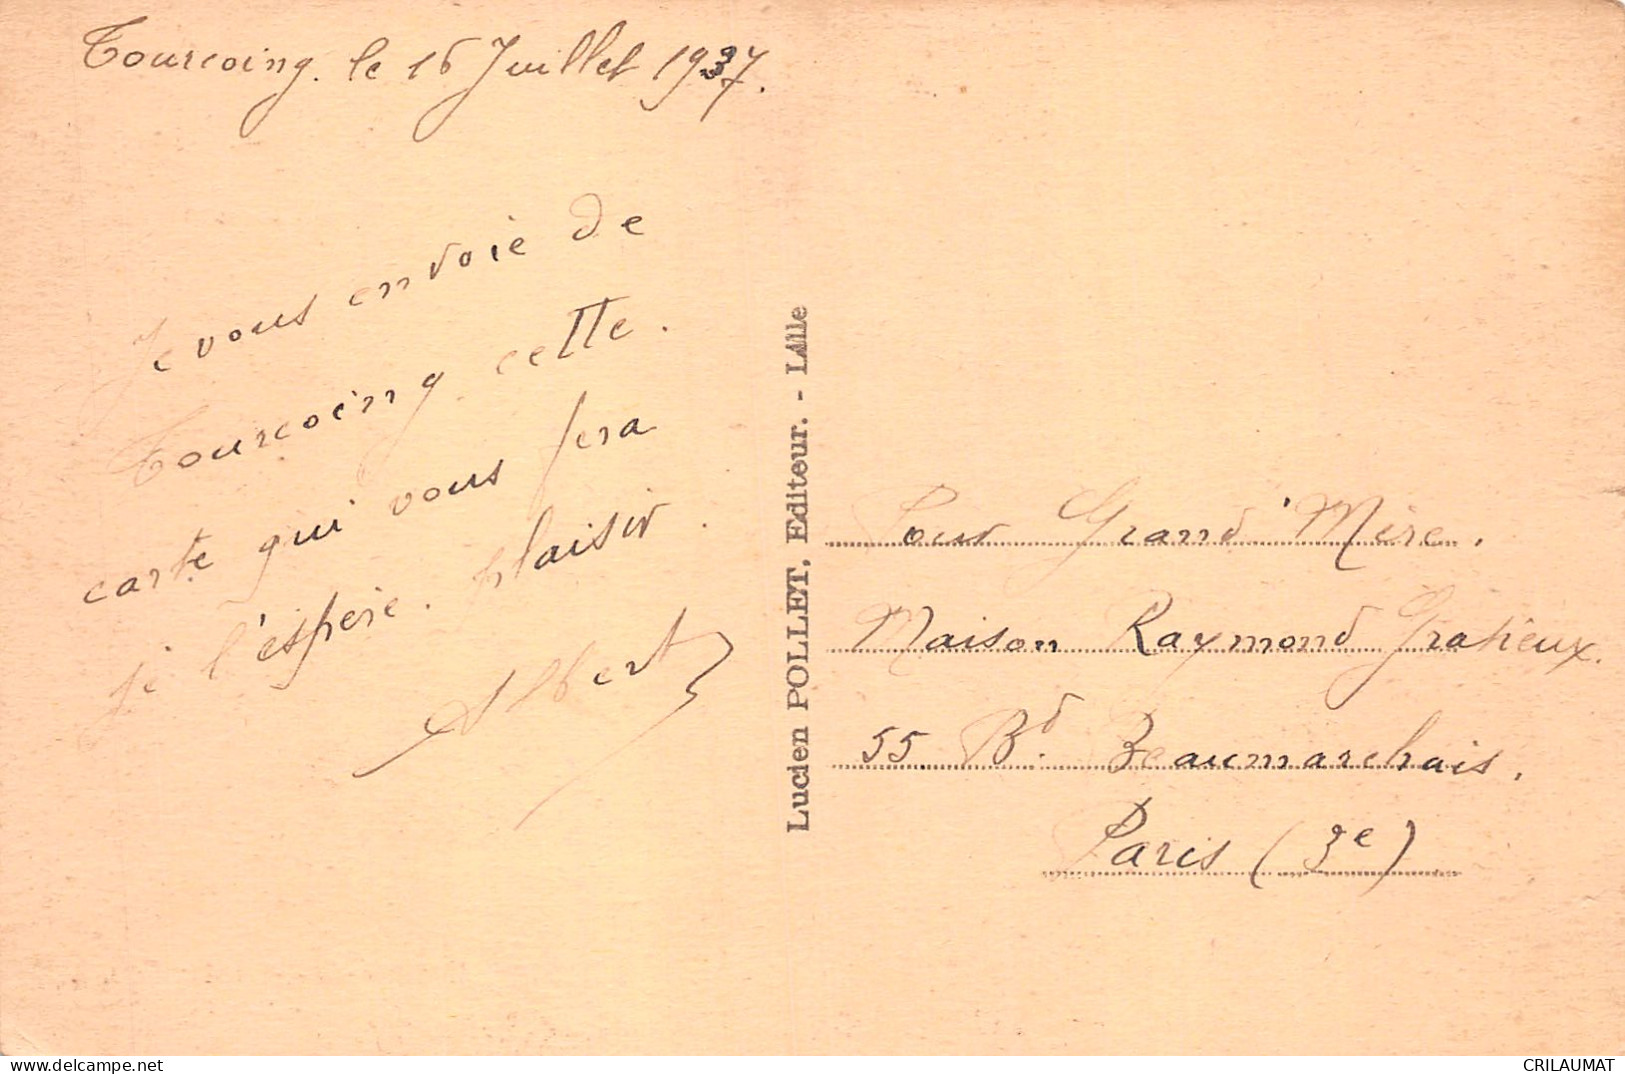 Tourcoing. le 16 Juillet 1937.
Je vous envoie de
Tourcoing cette.
carte qui vous fera
je l'espère. plaisir.
Albert
Lucien POLLET, Editeur. - Lille
Pour Grand'Mère.
Maison Raymond Gratieux.
55. Bd. Beaumarchais.
Paris (3e)
delcampe.net
CRILAUMAT